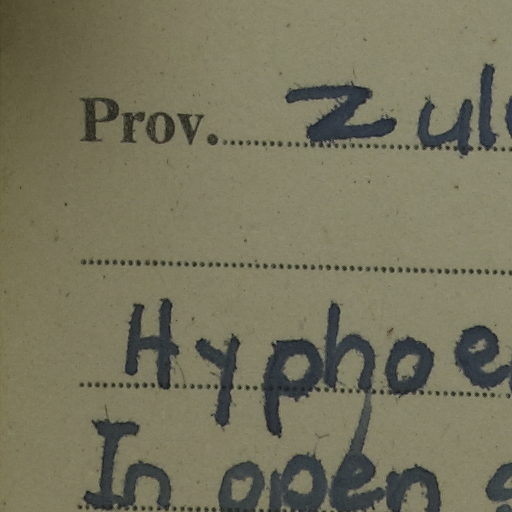 Prov. Zulu
Hyphoe
In open